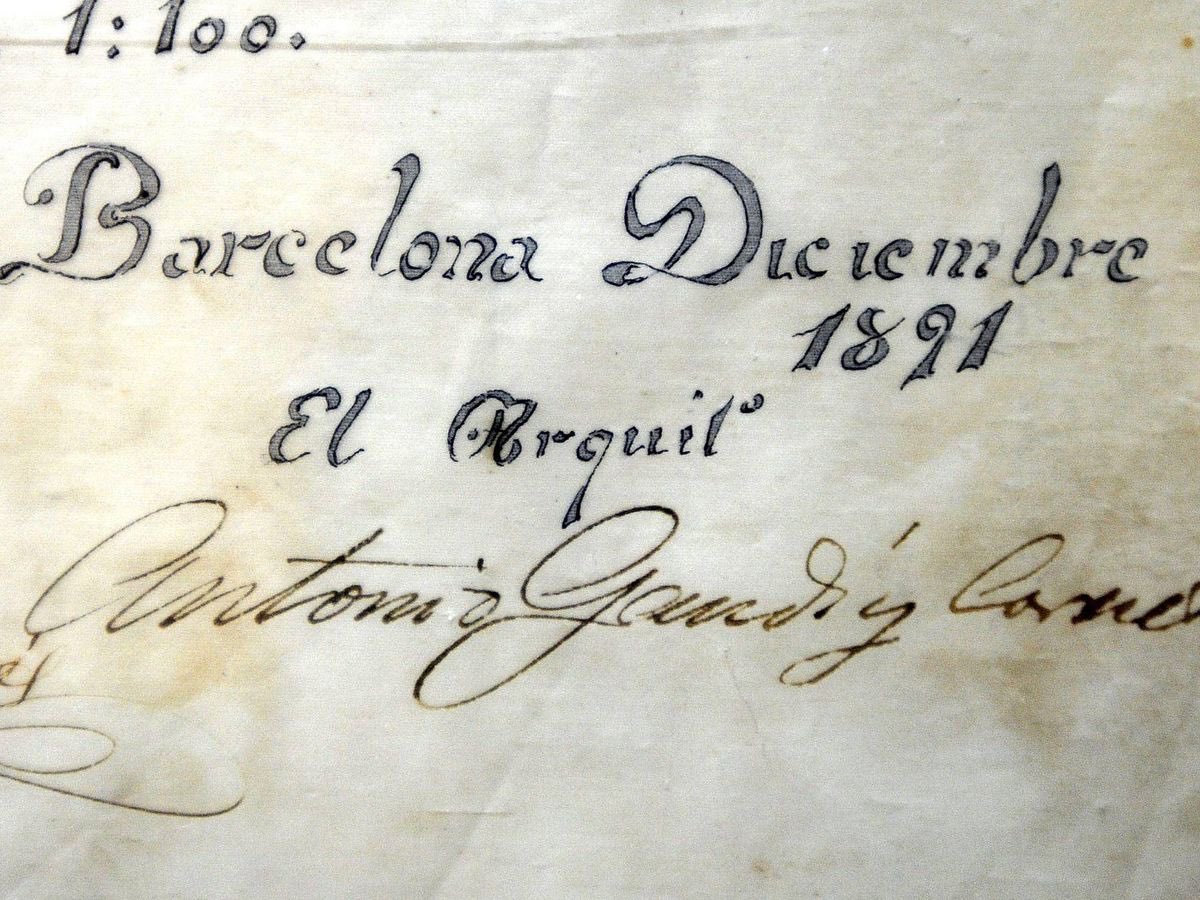 1:100.
Barcelona Diciembre
1891
El Arquitº
Antonio Gaudí y Cornet